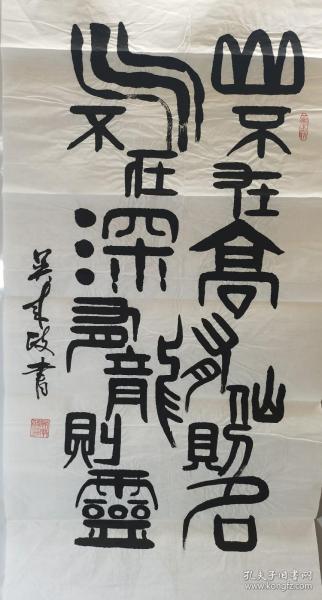 山不在高有仙則名
水不在深有龍則靈
吴東政書
孔夫子旧书网